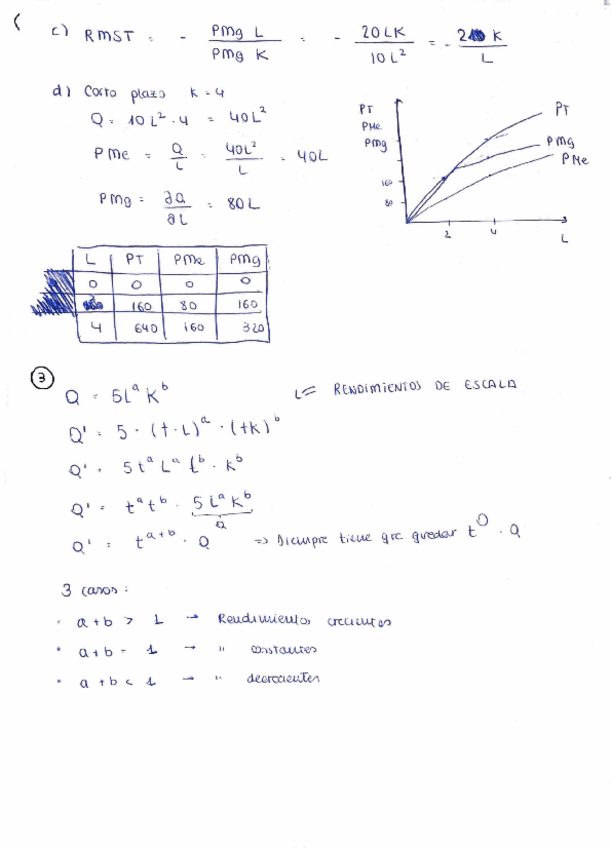 c) RMST = - PMg L / PMg K = - 20LK / 10L² = - 2 K / L
d) Corto plazo K = 4
Q = 10L² · 4 = 40L²
PMe = Q / L = 40L² / L = 40L
PMg = ∂Q / ∂L = 80L
PT
PMe
PMg
160
80
2 4 L
PT
PMg
PMe
L PT PMe PMg
0 0 0 0
160 80 160
4 640 160 320
③ Q = 5L^a K^b RENDIMIENTOS DE ESCALA
Q' = 5 · (t·L)^a · (tK)^b
Q' = 5t^a L^a t^b · K^b
Q' = t^a t^b · 5L^a K^b
Q
Q' = t^(a+b) · Q => Siempre tiene que quedar t^() · Q
3 casos:
· a+b > 1 → Rendimientos crecientes
· a+b = 1 → " constantes
· a+b < 1 → " decrecientes